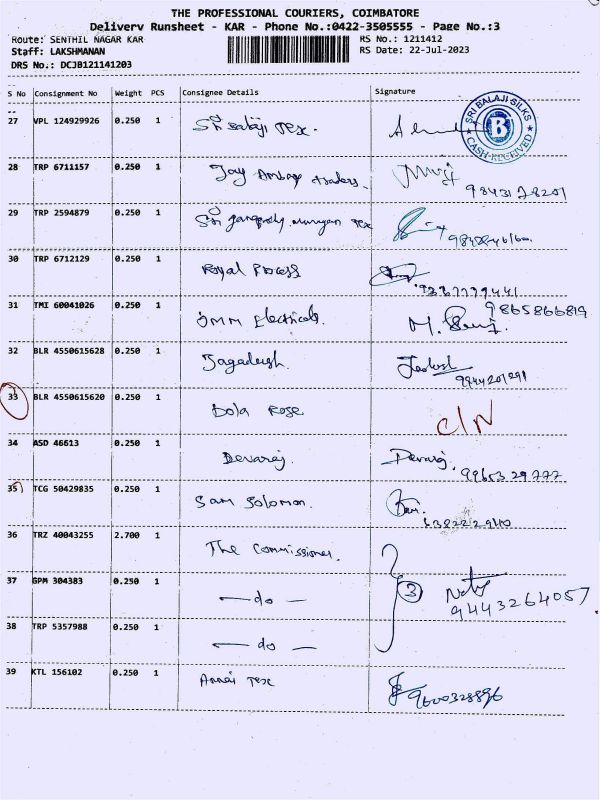 THE PROFESSIONAL COURIERS, COIMBATORE
Delivery Runsheet - KAR - Phone No.:0422-3505555 - Page No.:3
Route: SENTHIL NAGAR KAR
RS No.: 1211412
Staff: LAKSHMANAN
RS Date: 22-Jul-2023
DRS No.: DCJB121141203
S No Consignment No Weight PCS Consignee Details Signature
27 VPL 124929926 0.250 1 Sri Balaji Tex.
SRI BALAJI SILKS
B
CASH RECEIVED
28 TRP 6711157 0.250 1 Jay Ambay traders.
9843178201
29 TRP 2594879 0.250 1 Sri murugan Tex
30 TRP 6712129 0.250 1 Royal Process
31 TMI 60041026 0.250 1 OMM Electricals. 9865866819
32 BLR 4550615628 0.250 1 Jagadeesh.
9944201291
33 BLR 4550615620 0.250 1 Dola Rose C/N
34 ASD 46613 0.250 1 Devaraj. Devaraj.
9965329777
35 TCG 50429835 0.250 1 Sam Solomon.
6382222940
36 TRZ 40043255 2.700 1 The Commissioner.
37 GPM 304383 0.250 1 — do — 3
9443264057
38 TRP 5357988 0.250 1 — do —
39 KTL 156102 0.250 1 Annai Tex
9600328896